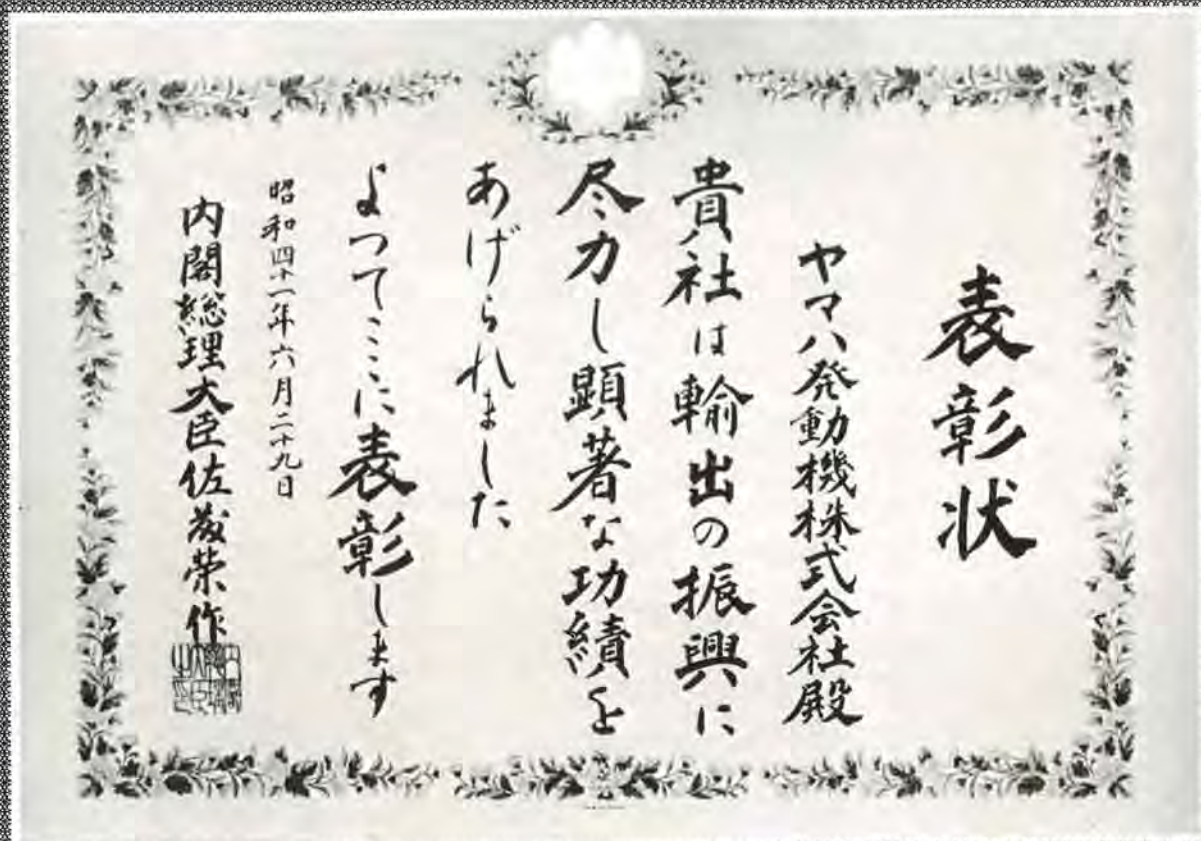 表彰状
ヤマハ発動機株式会社殿
貴社は輸出の振興に
尽力し顕著な功績を
あげられました
よつてここに表彰します
昭和四十一年六月二十九日
内閣総理大臣佐藤栄作
内閣総理大臣之印